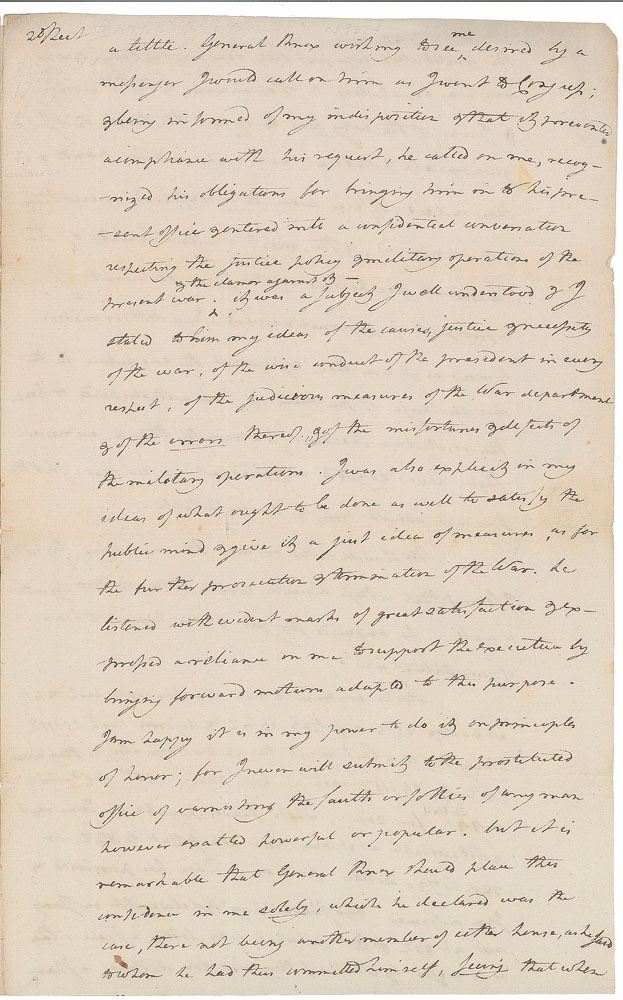 2d Sheet
a little. General Knox wishing to see me, desired by a
messenger I would call on him as I went to Congress;
& being informed of my indisposition & that it prevented
a compliance with his request, he called on me, recog-
-nized his obligations for bringing him in to his pre-
-sent office & entered into a confidential conversation
respecting the justice policy & military operations of the
present war & the clamor against it. — it was a subject I well understood & I
stated to him my ideas of the causes, justice & necessity
of the war, of the wise conduct of the president in every
respect, of the judicious measures of the War department
& of the errors thereof, & of the misfortunes & defects of
the military operations. I was also explicit in my
ideas of what ought to be done as well to satisfy the
public mind & give it a just idea of measures, as for
the further prosecution & termination of the War. he
listened with evident marks of great satisfaction & ex-
pressed a reliance on me to support the executive by
bringing forward motions adapted to this purpose.
I am happy it is in my power to do it on principles
of honor; for I never will submit to the prostituted
office of varnishing the faults or follies of any man
however exalted powerful or popular. but it is
remarkable that General Knox should place this
confidence in me solely, which he declared was the
case, there not being another member of either house, as he said
to whom he had thus committed himself, seeing that when